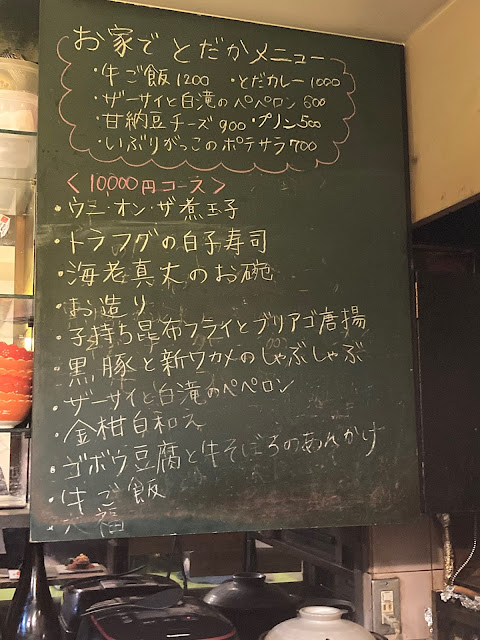 お家で とだかメニュー
・牛ご飯 1200 ・とだカレー 1000
・ザーサイと白滝のペペロン 600
・甘納豆チーズ 900 ・プリン 500
・いぶりがっこのポテサラ 700
<10000円コース>
・ウニ・オン・ザ・煮玉子
・トラフグの白子寿司
・海老真丈のお碗
・お造り
・子持ち昆布フライとブリアゴ唐揚
・黒豚と新ワカメのしゃぶしゃぶ
・ザーサイと白滝のペペロン
・金柑白和え
・ゴボウ豆腐と牛そぼろのあんかけ
・牛ご飯
・大福